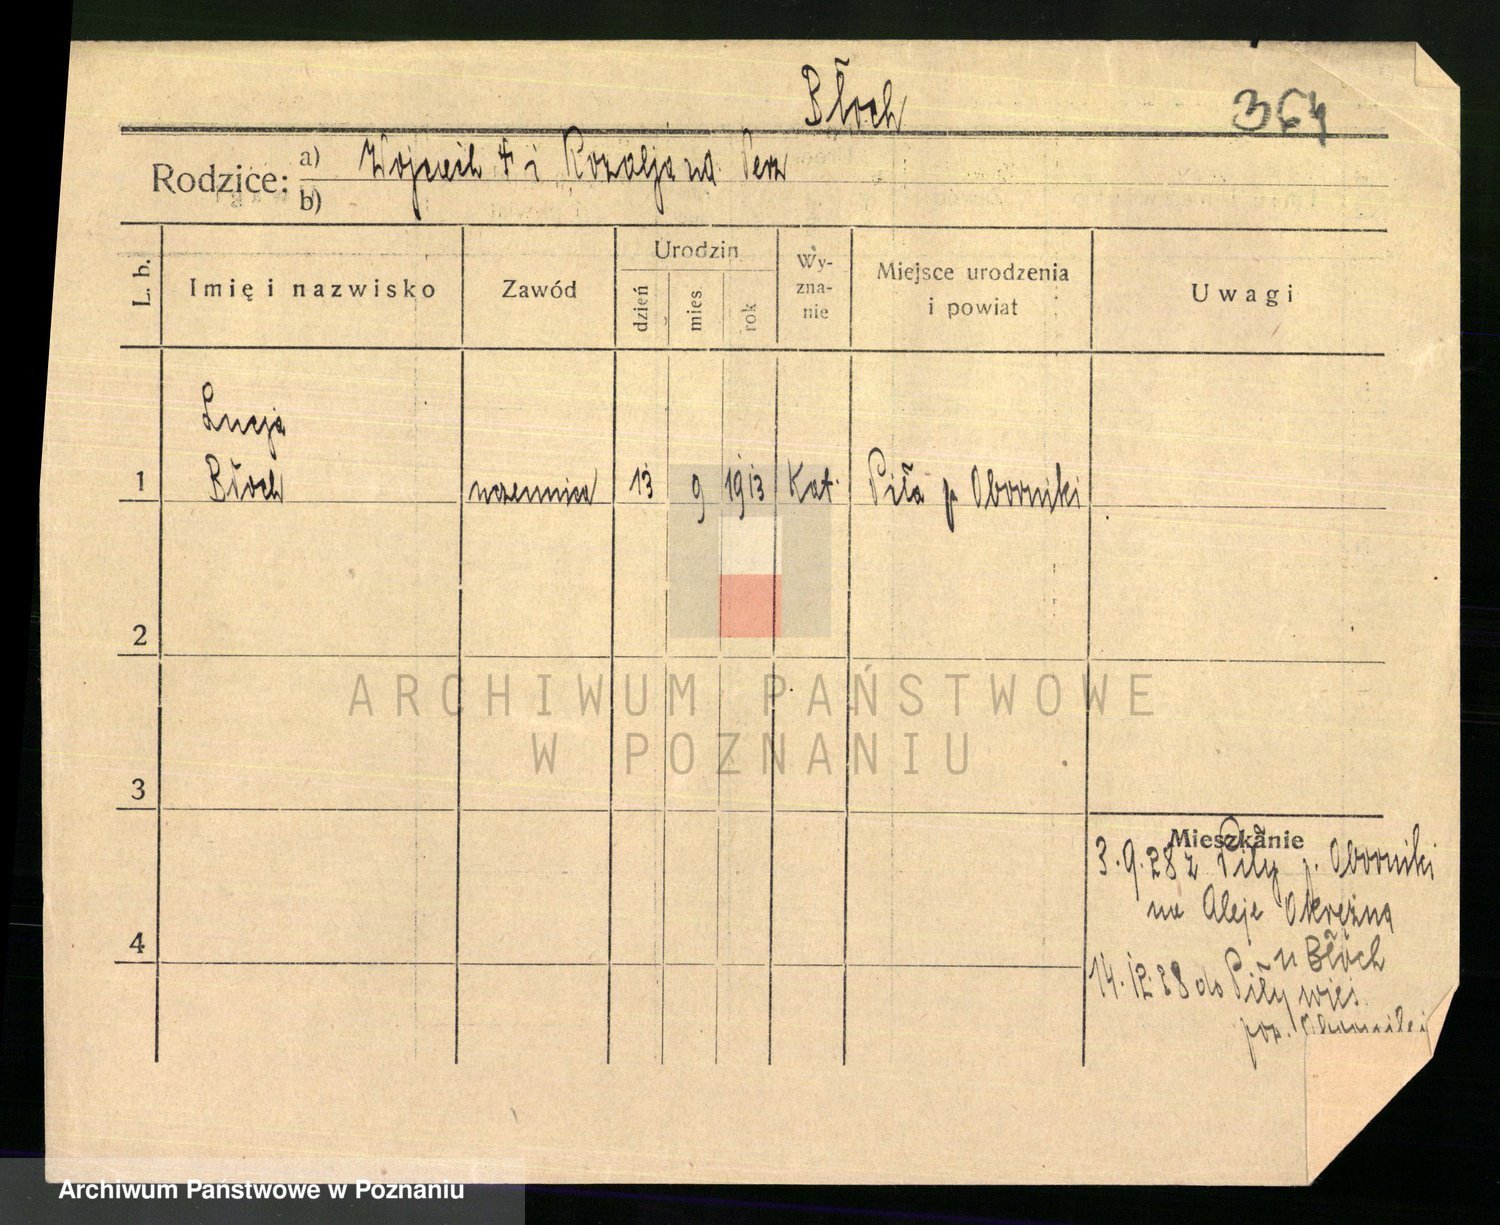 Błoch
364
Rodzice:
a) Wojciech † i Rozalja na Perz
b)
L. b.
Imię i nazwisko
Zawód
Urodzin
dzień
mies.
rok
Wy-
zna-
nie
Miejsce urodzenia
i powiat
Uwagi
Łucja
1 Błoch uczennica 13 9 1913 Kat. Piła p Oborniki
2
ARCHIWUM PAŃSTWOWE
W POZNANIU
3
Mieszkanie
3.9.28 z Piły p. Oborniki
na Aleje Okrężna
4
u Błoch
14.12.28 do Piły wieś
pow. Oborniki
Archiwum Państwowe w Poznaniu